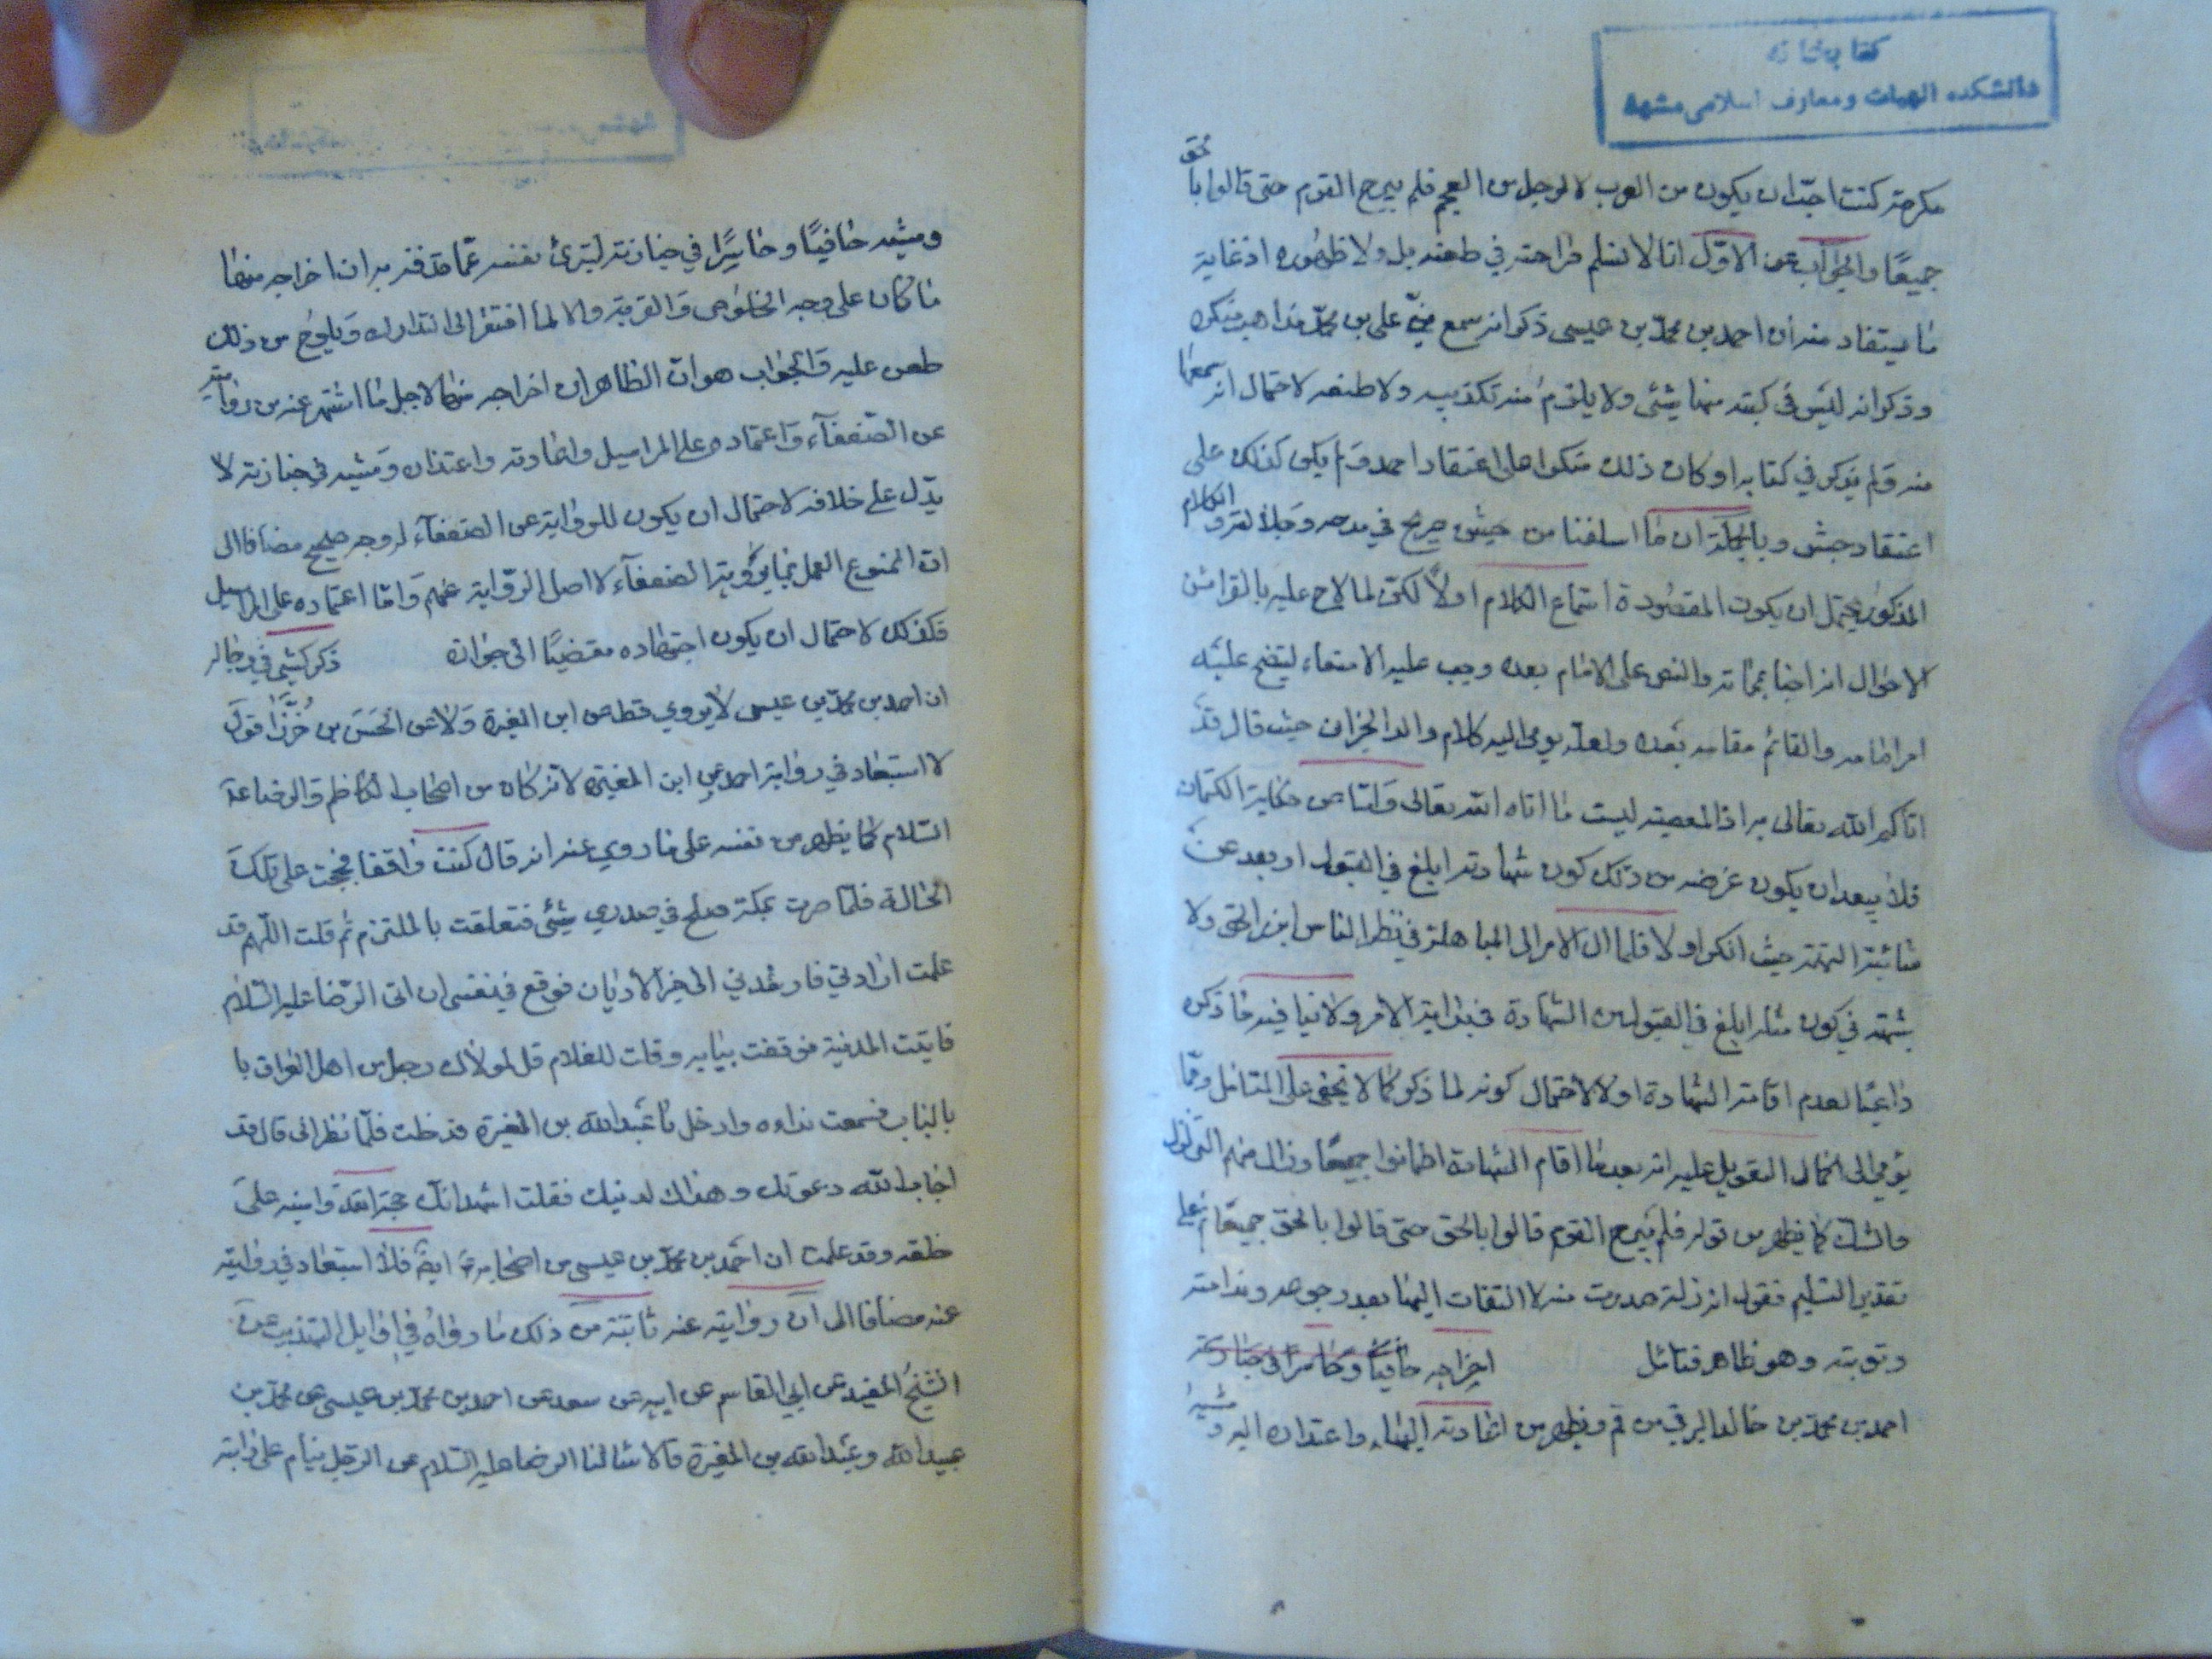 كتابخانه
دانشكده الهيات ومعارف اسلامى مشهد
مكرمة كنت احبّ ان يكون من العرب لا لرجل من العجم فلم يبرح القوم حتى قالوا بالحق
جميعًا والجواب عن الاوّل انا لا نسلم صراحته في طعنه بل ولا ظهوره اذ غاية
ما يستفاد منه ان احمد بن محمّد بن عيسى ذكر انه سمع من علي بن محمّد مذاهب منكره
وذكر انه ليس في كتبه منها شئ ولا يلزم منه تكذيبه ولا طعنه لاحتمال انه سمعها
منه ولم يذكر في كتابه او كان ذلك منكرا على اعتقاد احمد ولم يكن كذلك على
اعتقاد وبالجملة ان ما اسلفنا من صريح في مدحه وجلالته و الكلام
المذكور يحتمل ان يكون المقصود استماع الكلام اولًا لكن لما لاح عليه بالقرائن
الاحوال انه اخبار بمماته والنص على الامام بعده وجب عليه الاستماع ليتضح عليه
امر امامه والقائم مقامه بعده ولعلّه يومى اليه كلام والد الخيراني حيث قال قد
الله تعالى المعصية ليست ما اتاه الله تعالى وامّا عن حكاية الكتمان
فلا يبعد ان يكون غرضه من ذلك كون شهادته ابلغ في القبول او بعد عن
شائبة التهمة حيث انكر اولا فلما ال الامر الى المباهلة في نظر الناس ابرز الحق ولا
شبهة في كون مثله ابلغ في القبول من الشهادة في بداية الامر ولا ينافيه ما ذكره
داعيًا لعدم اقامة الشهادة اولا لاحتمال كونه لما ذكر كما لا يخفى على المتأمل وممّا
يؤمي الى كمال التعويل عليه انه بعد ما اقام الشهادة اطمانوا جميعًا وزال عنهم التزلزل
والشك كما يظهر من قوله فلم يبرح القوم حتى قالوا بالحق جميعًا ثم على
تقدير التسليم فنقول انه زلة صدرت منه لا التفات اليها بعد رجوعه وندامته
وتوبته وهو ظاهر فتأمل اخراجه حافيًا وحاسرًا في جنازته
احمد بن محمّد بن خالد البرقي من قم ويظهر من اعادته اليها واعتذاره اليه ومشيه
ومشيه حافيًا وحاسرًا في جنازته ليبرئ نفسه عمّا قذفه به ان اخراجه منها
ما كان على وجه الخلوص والقربة والا لما افتقر الى التدارك ويلوح من ذلك
طعن عليه والجواب هو ان الظاهر ان اخراجه منها لاجل ما اشتهر عنه من روايته
عن الضعفآء واعتماده على المراسيل واعادته واعتذاره ومشيه في جنازته لا
يدّل على خلافه لاحتمال ان يكون للرواية عن الضعفآء له وجه صحيح مضافا الى
ان الممنوع العمل بما يرويه الضعفآء لا اصل الرواية عنهم وامّا اعتماده على المراسيل
فكذلك لاحتمال ان يكون اجتهاده مقتضيًا الى جوازه ذكر كشى في رجاله
ان احمد بن محمّد بن عيسى لا يروي قط عن ابن المغيرة ولا عن الحسن بن خرّزاذ قول
لا استبعاد في رواية احمد عن ابن المغيرة لانه كان من اصحاب الكاظم والرضا عة
السّلام كما يظهر من نفسه على ما روي عنه انه قال كنت واقفا فحججت على تلك
الحالة فلمّا صرت بمكة خلج في صدري شئ فتعلقت بالملتزم ثم قلت اللّهم قد
علمت ارادتي فارشدني الى خير الاديان فوقع في نفسي ان اتى الرّضا عليه السّلام
فاتيت المدينة فوقفت ببابه وقلت للغلام قل لمولاك رجل من اهل العراق با
بالباب فسمعت نداءه وادخل يا عبد الله بن المغيرة فدخلت فلمّا نظر الى قال قد
اجاب الله دعوتك وهداك لدينك فقلت اشهد انك حجة الله وامينه على
خلقه وقد علمت ان احمد بن محمّد بن عيسى من اصحابه ايضً فلا استبعاد في روايته
عنه مضافا الى ان روايته عنه ثابتة من ذلك ما رواه في اوايل التهذيب عن
الشيخ المفيد عن ابي القاسم عن ابيه عن سعد عن احمد بن محمّد بن عيسى عن محمّد بن
عبيد الله وعبد الله بن المغيرة قالا سئالنا الرضا عليه السّلام عن الرّجل ينام على دابته